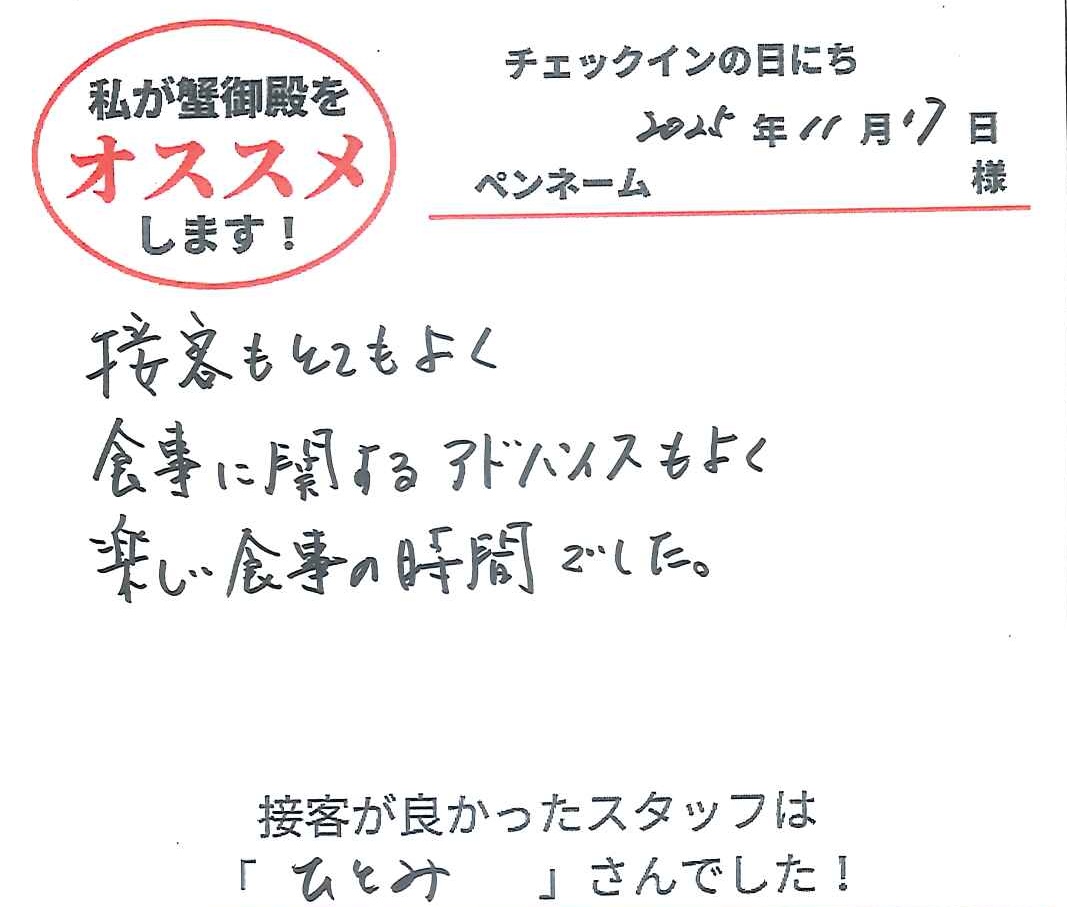 私が蟹御殿を
オススメ
します！
チェックインの日にち
2025年11月17日
ペンネーム 様
接客もとてもよく
食事に関するアドバイスもよく
楽しい食事の時間でした。
接客が良かったスタッフは
「ひとみ」さんでした！